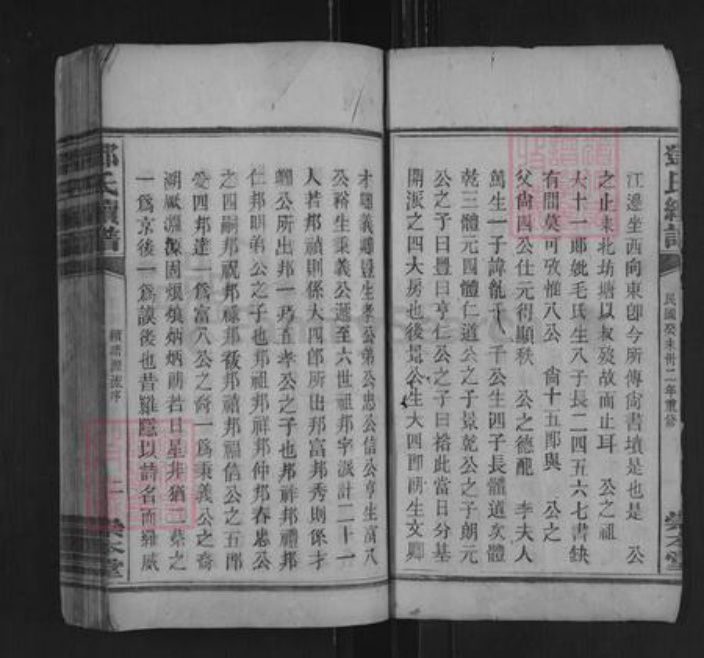 江邊坐西向東卽今所傳尙書墳是也是　公
之止朱北坊塘以叔歿故而止耳　公之祖
大十一郞妣毛氏生八子長二四五六七書缺
有間莫可攷惟八公　尙十五郞與　公之
父尙四公仕元得顯秩　公之德配　李夫人
萬生一子諱
千公生四子長體道次體
乾三體元四體仁道公之子景乾公之子朗元
公之子曰豐曰亨仁公之子曰
此當日分基
開派之四大房也後景公生大四郞朗生文卿
才
義
豐生孝公弟公忠公信公亨生富八
公
生秉義公遞至六世祖邦字派計二十一
人若邦禎則係大四郞所出邦富邦秀則係才
公所出邦一乃五孝公之子也邦祥邦禮邦
仁邦明弟公之子也邦祖邦祥邦仲邦春忠公
之四嗣邦祝邦祿邦
邦禧邦福信公之五郞
四邦達一爲富八公之裔一爲秉義公之裔
湖厥淵源固煥煥炳炳朗若日星井猶二葉之
一爲京後一爲謨後也昔羅隱以詩名而羅威
鄧氏續譜
民國癸未卅二年重修
榮本堂
鄧氏續譜
續譜源流序
二
榮本堂